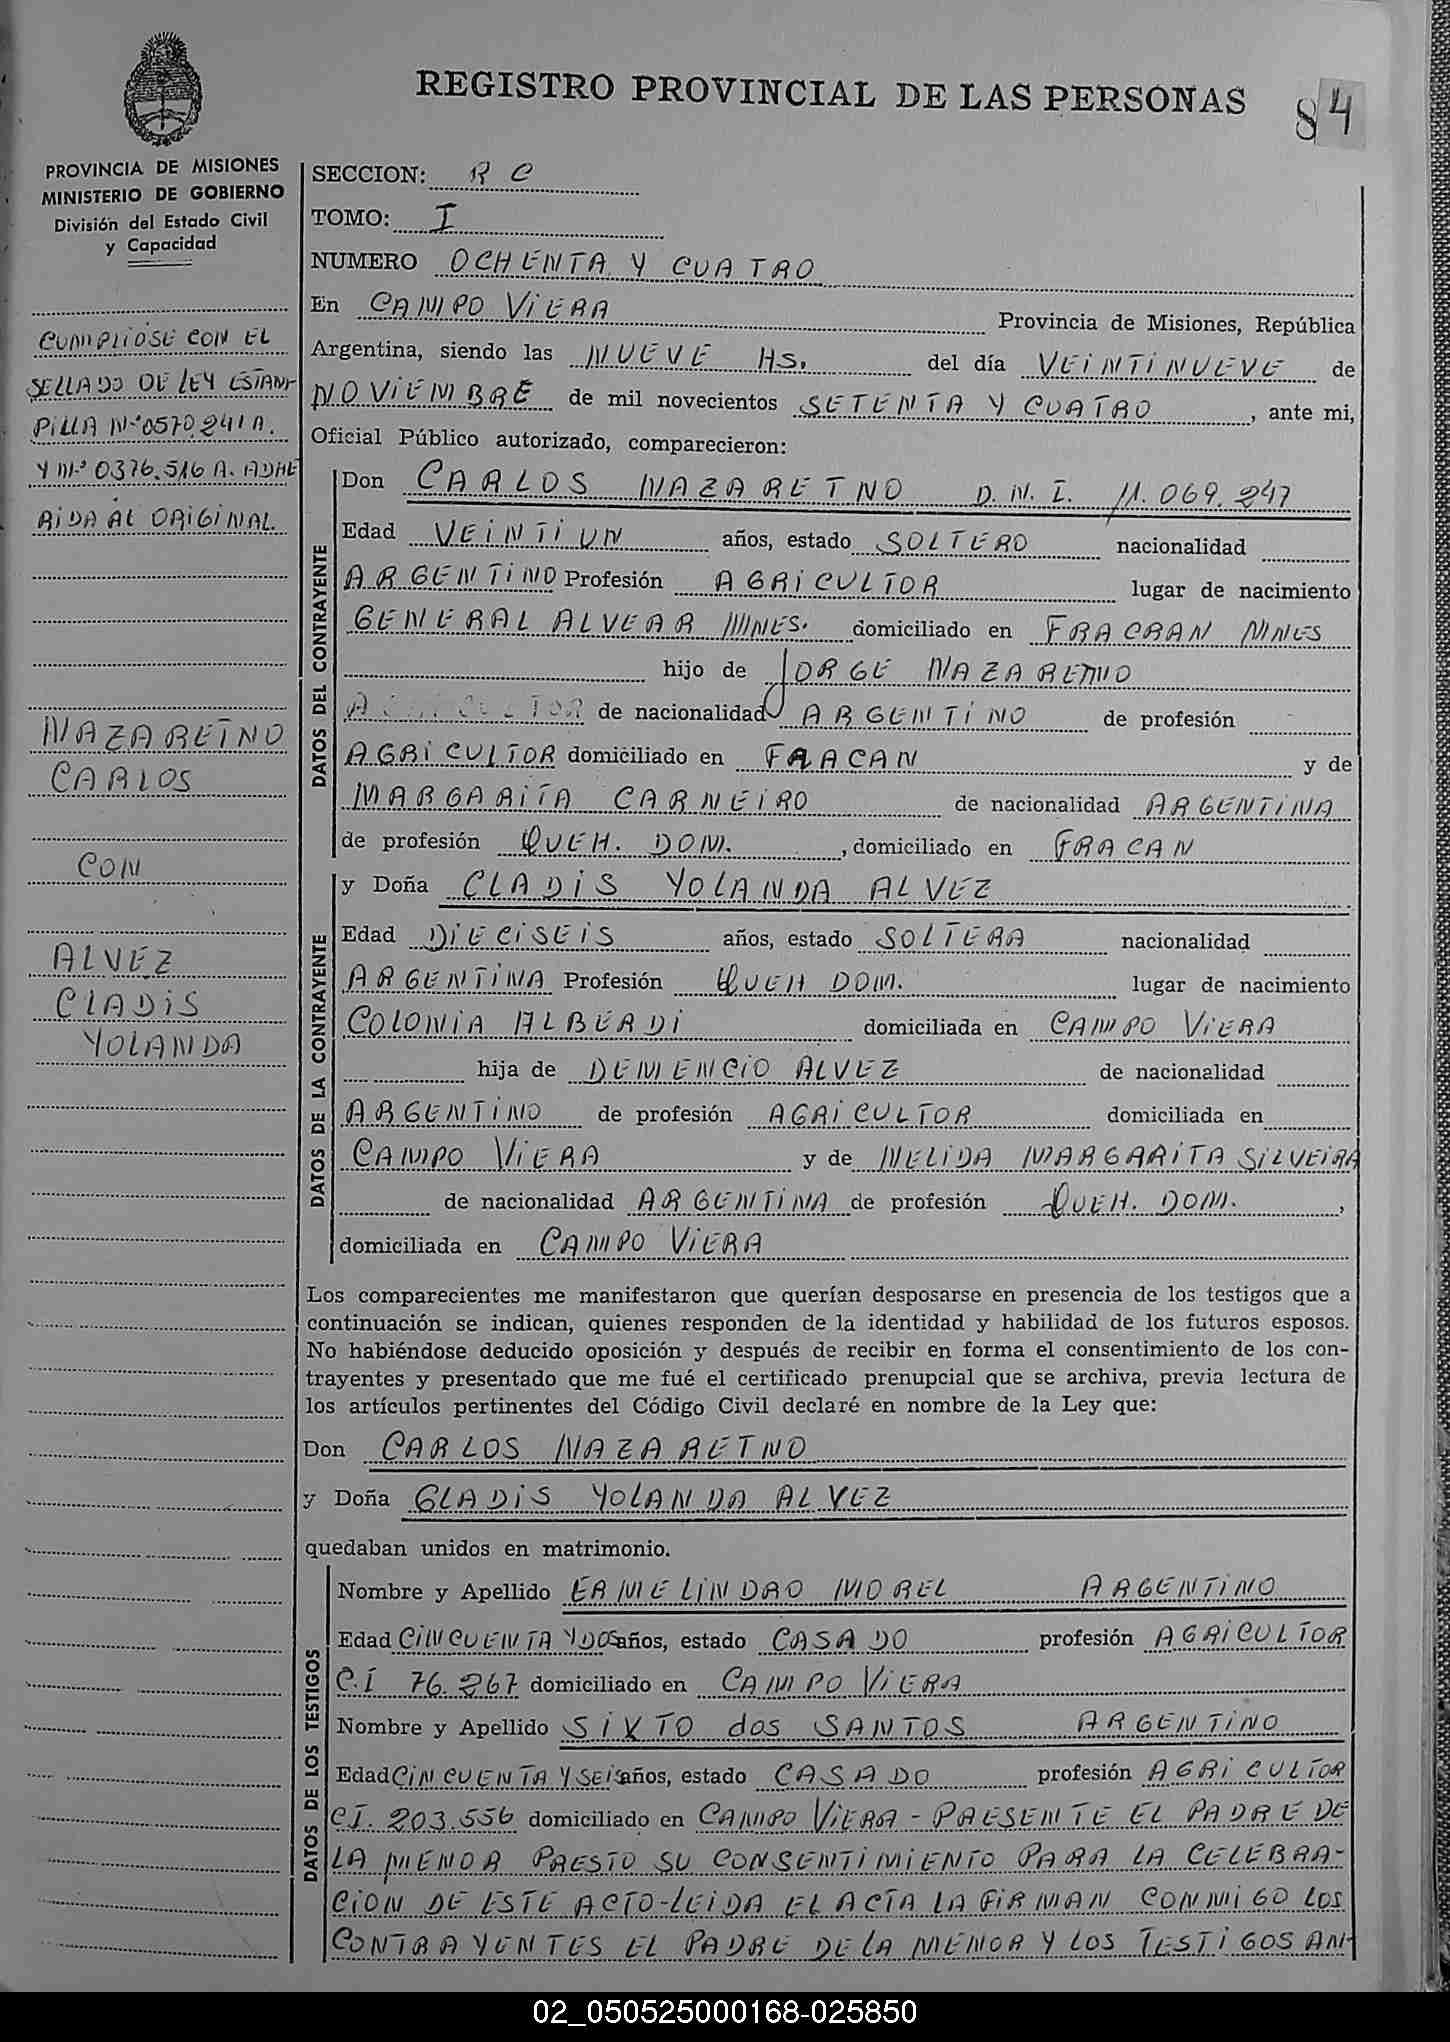 REGISTRO PROVINCIAL DE LAS PERSONAS
84
PROVINCIA DE MISIONES
MINISTERIO DE GOBIERNO
División del Estado Civil
y Capacidad
CUMPLIÓSE CON EL
SELLADO DE LEY ESTAM-
PILLA Nº 0570.241 A.
Y Nº 0376.516 A. ADHE
RIDA AL ORIGINAL.
NAZARETNO
CARLOS
CON
ALVEZ
CLADIS
YOLANDA
SECCION: R C
TOMO: I
NUMERO OCHENTA Y CUATRO
En CAMPO VIERA Provincia de Misiones, República
Argentina, siendo las NUEVE HS. del día VEINTINUEVE de
NOVIEMBRE de mil novecientos SETENTA Y CUATRO, ante mi,
Oficial Público autorizado, comparecieron:
DATOS DEL CONTRAYENTE
Don CARLOS NAZARETNO D.N.I. 11.069.247
Edad VEINTIUN años, estado SOLTERO nacionalidad
ARGENTINO Profesión AGRICULTOR lugar de nacimiento
GENERAL ALVEAR MNES. domiciliado en FRACRAN MNES
hijo de JORGE NAZARETNO
de nacionalidad ARGENTINO de profesión
AGRICULTOR domiciliado en FRACAN y de
MARGARITA CARNEIRO de nacionalidad ARGENTINA
de profesión QUEH. DOM., domiciliado en FRACAN
DATOS DE LA CONTRAYENTE
y Doña CLADIS YOLANDA ALVEZ
Edad DIECISEIS años, estado SOLTERA nacionalidad
ARGENTINA Profesión QUEH DOM. lugar de nacimiento
COLONIA ALBERDI domiciliada en CAMPO VIERA
hija de DEMENCIO ALVEZ de nacionalidad
ARGENTINO de profesión AGRICULTOR domiciliada en
CAMPO VIERA y de NELIDA MARGARITA SILVEIRA
de nacionalidad ARGENTINA de profesión QUEH. DOM.,
domiciliada en CAMPO VIERA
Los comparecientes me manifestaron que querían desposarse en presencia de los testigos que a
continuación se indican, quienes responden de la identidad y habilidad de los futuros esposos.
No habiéndose deducido oposición y después de recibir en forma el consentimiento de los con-
trayentes y presentado que me fué el certificado prenupcial que se archiva, previa lectura de
los artículos pertinentes del Código Civil declaré en nombre de la Ley que:
Don CARLOS NAZARETNO
y Doña GLADIS YOLANDA ALVEZ
quedaban unidos en matrimonio.
DATOS DE LOS TESTIGOS
Nombre y Apellido ERMELINDRO MOREL ARGENTINO
Edad CINCUENTA Y DOS años, estado CASADO profesión AGRICULTOR
C.I 76.267 domiciliado en CAMPO VIERA
Nombre y Apellido SIXTO dos SANTOS ARGENTINO
Edad CINCUENTA Y SEIS años, estado CASADO profesión AGRICULTOR
CI. 203.556 domiciliado en CAMPO VIERA - PRESENTE EL PADRE DE
LA MENOR PRESTO SU CONSENTIMIENTO PARA LA CELEBRA-
CION DE ESTE ACTO-LEIDA EL ACTA LA FIRMAN CONMIGO LOS
CONTRAYENTES EL PADRE DE LA MENOR Y LOS TESTIGOS AN-
02_050525000168-025850